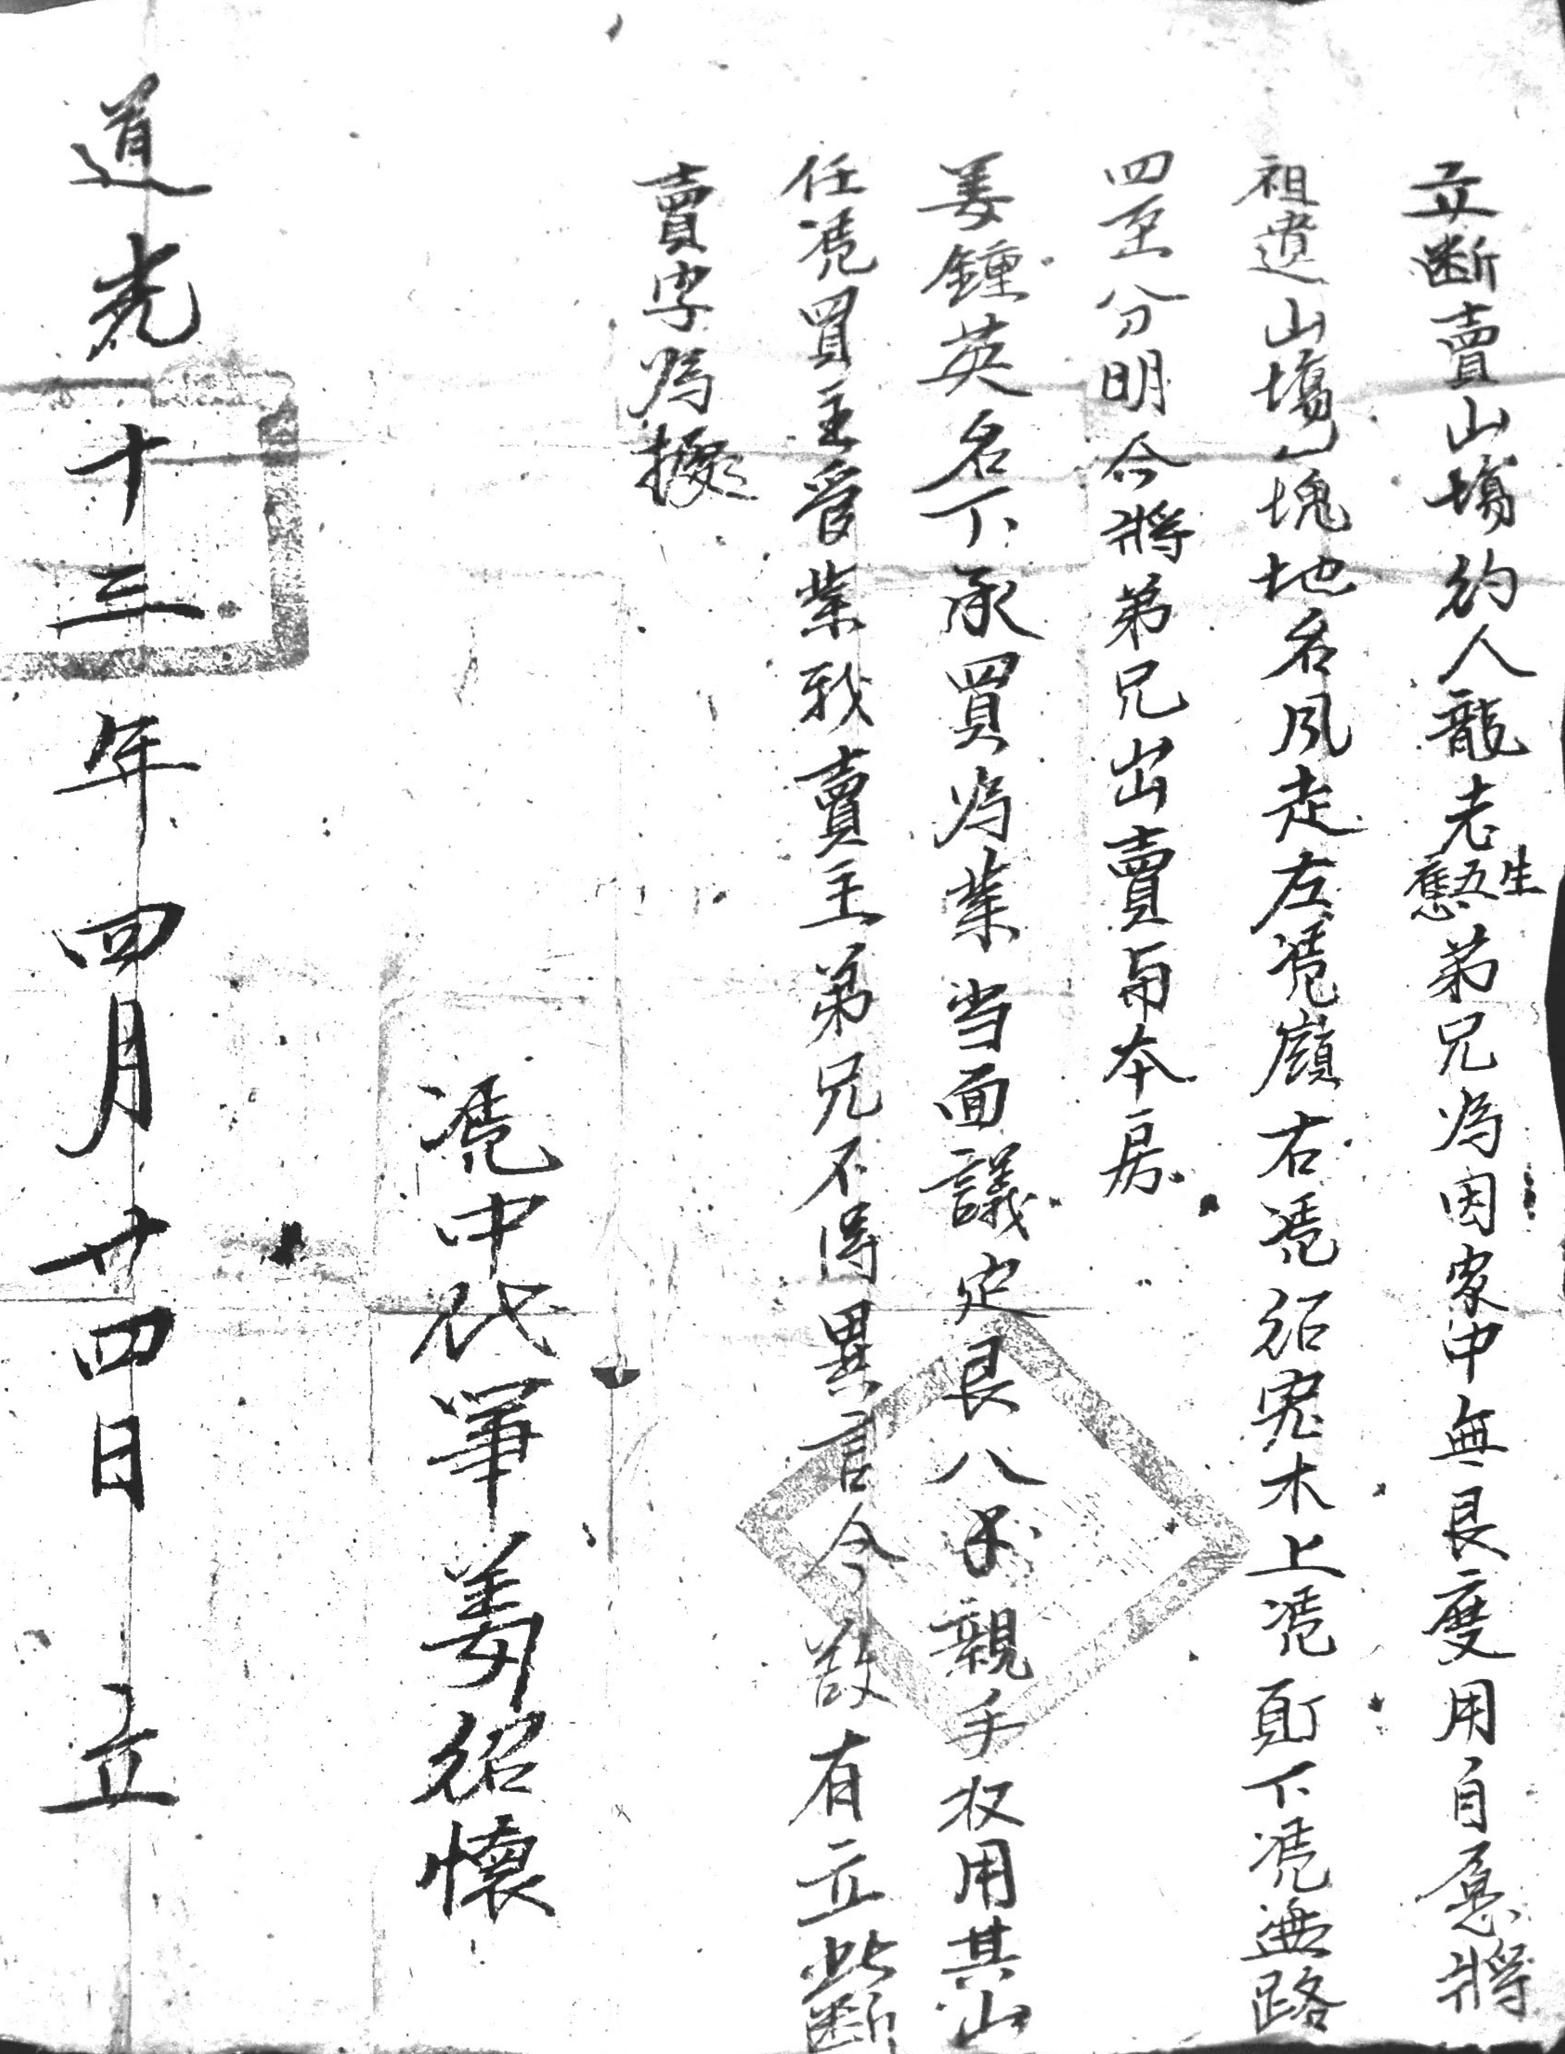 立断賣山塲約人龍老生五應弟兄為因家中無艮度用自愿將
祖遺山塲一塊地名凨走左凴嶺右凴紹宽木上凴頂下凴路
四至分明今將弟兄出賣與本房
姜鍾英名下承買為業当面議定艮八手親手收用其山
任凴買主管業我賣主弟兄不得異言今欲有立此断
賣字為據
凴中代筆姜紹懷
道光十三年四月廿四日立